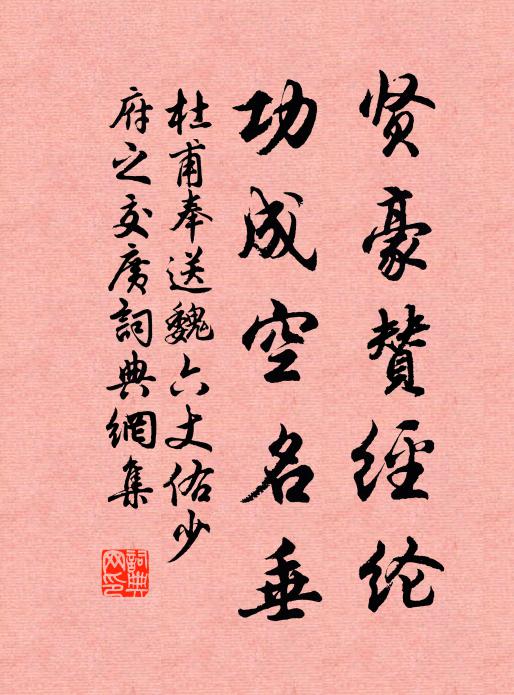 贤豪赞經纶
功成空名垂
杜甫奉送魏六丈佑少
府之交广詞典網集
詞典网印